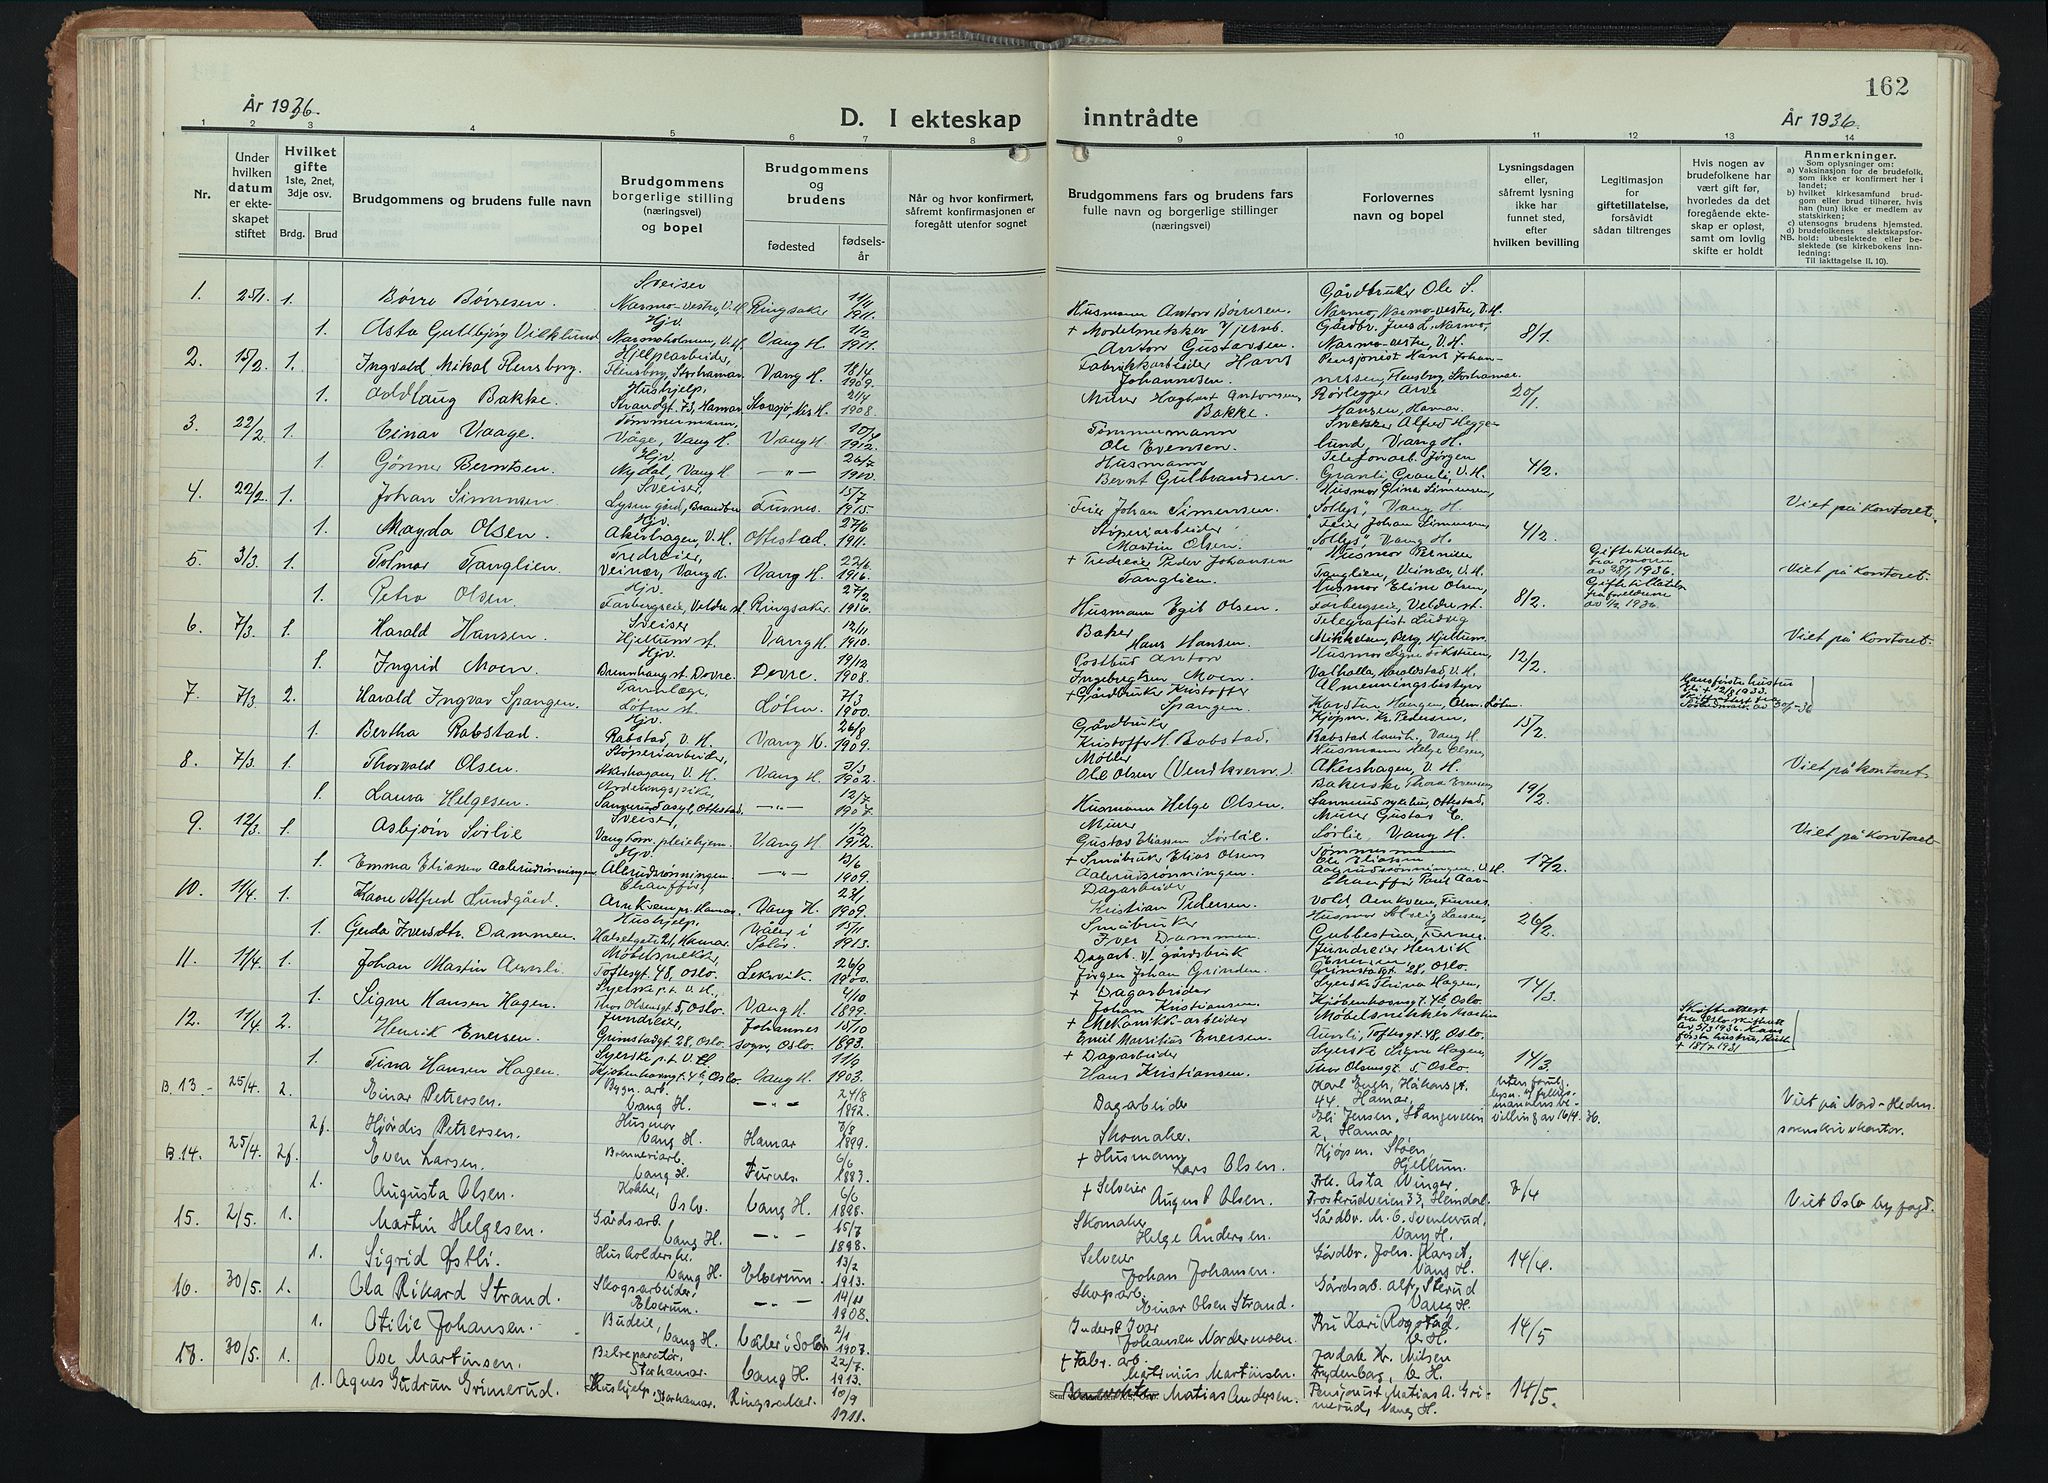 162
År 1936.
D. I ekteskap inntrådte
År 1936.
1 2 3 4 5 6 7 8 9 10 11 12 13 14
Nr.
Under hvilken datum er ekteskapet stiftet
Hvilket gifte 1ste, 2net, 3dje osv.
Brdg. Brud
Brudgommens og brudens fulle navn
Brudgommens borgerlige stilling (næringsvei) og bopel
Brudgommens og brudens
fødested
fødsels-år
Når og hvor konfirmert, såfremt konfirmasjonen er foregått utenfor sognet
Brudgommens fars og brudens fars fulle navn og borgerlige stillinger (næringsvei)
Forlovernes navn og bopel
Lysningsdagen eller, såfremt lysning ikke har funnet sted, efter hvilken bevilling
Legitimasjon for giftetillatelse, forsåvidt sådan tiltrenges
Hvis nogen av brudefolkene har vært gift før, hvorledes da det foregående ekteskap er opløst, samt om lovlig skifte er holdt
Anmerkninger.
Som oplysninger om:
a) Vaksinasjon for de brudefolk, som ikke er konfirmert her i landet;
b) hvilket kirkesamfund brudgom eller brud tilhører, hvis han (hun) ikke er medlem av statskirken;
c) utensogns brudens hjemsted.
d) brudefolkenes slektskapsforhold: ubeslektede eller beslektede (se kirkebokens innledning:
NB. Til iakttagelse II, 10).
1. 25/1 1. Børre Børresen. Sveiser Narmo-vestre, V. H. Ringsaker 1911. Husmann Anton Børresen. Gårdbruker Ole S. Narmo, Narmo-vestre, V. H.
1. Asta Gullbjørg Vicklund Hjv. Narmoholmen, V. H. Vang H. 1/2 1911. + Modelsnekker v/jernb. Anton Gustavsen. Gårdbr. Jens L. Narmo, Narmo-vestre, V. H. 8/1
2. 15/2 1. Ingvald Mikal Flensborg. Hjelpearbeider, Flensborg, Storhamar Vang H. 18/4 1909. Fabrikkarbeider Hans Johannesen. Pensjonist Hans Johannesen, Flensborg Storhamar.
1. Oddlaug Bakke. Hushjelp, Strandgt. 73, Hamar Stavsjø, Nes H. 21/4 1908. Murer Hagbart Antonsen Bakke. Rørlegger Arve Hansen, Hamar. 20/1
3. 22/2 1. Einar Vaage. Tømmermann, Våge, Vang H. Vang H. 10/4 1912. Tømmermann Ole Evensen. Snekker Alfred Heggelund, Vang H.
1. Gønner Berntsen. Hjv. Nydal, Vang H. —"— 26/7 1910. Husmann Bernt Gulbrandsen. Telefonarb. Jørgen Granli Granli, V. H. 4/2
4. 22/2 1. Johan Simensen Sveiser, Furnes. 15/7 1915 Feier Johan Simensen. Husmor Olina Simensen, "Solly", Vang H. Viet på kontoret.
1. Magda Olsen. Hjv. Akershagen, V. H. Ottestad 27/6 1911. Støperiarbeider Martin Olsen. Feier Johan Simensen, "Solly", Vang H. 4/2
5. 3/3 1. Tolmar Tanglien. Tredreier, Veinær, Vang H. Vang H. 22/6 1916. + Tredreier Peder Johansen Tanglien. Husmor Pernille Tanglien, Veinær, V. H. Giftetillatelse fra moren av 28/1 1936. Viet på kontoret.
1. Petra Olsen Hjv. Farbergseie, Veldre st. Ringsaker 27/2 1916 Husmann Egil Olsen. Husmor Eline Olsen, Farbergseie, Veldre st. 8/2. Giftetillatelse fra foreldrene av 1/2 1936.
6. 7/3. 1. Harald Hansen. Sveiser Hjellum st. Vang H. 12/11 1910. Baker Hans Hansen. Telegrafist Ludvig Mikkelsen, Berg, Hjellum. Viet på kontoret.
1. Ingrid Moen. Hjv. Brennhaug st. Dovre. Dovre. 19/12 1908. Postbud Anton Ingebregtsen Moen. Husmor Signe Valhalla, Haraldstad, V. H. 12/2.
7. 7/3. 2. Harald Ingvar Spangen. Tannlæge, Løten st. Løten. 7/3 1900. + Gårdbruker Kristoffer Spangen. Almenningsbestyrer Karsten Haugen, Alm. Løten.
1. Bertha Rabstad. Hjv. Rabstad, V. H. Vang H. 26/8 1909. Gårdbruker Kristoffer H. Rabstad. Kjøpm. Kr. Pedersen, Rabstad landh., Vang H. 15/2
8. 7/3. 1. Thorvald Olsen. Støperiarbeider, Akershagen, V. H. Vang H. 3/3 1902. Møller Ole Olsen (Vendkvern.) Husmann Helge Olsen, Akershagen, V. H. Viet på kontoret.
1. Laura Helgesen. Avdelingspike, Sanerud asyl, Ottestad. —"— 12/7 1907. Husmann Helge Olsen. Bakerske Thora Evensen, Sanerud sykehus, Ottestad. 19/2.
9. 12/3. 1. Asbjørn Sørlie Sveiser, Vang kom. pleiehjem. Vang H. 1/2 1912. Murer Gustav Eliassen Sørlie. Murer Gustav E. Sørlie, Vang H. Viet på kontoret.
1. Emma Eliasen Aalerudrønningen Hjv. Alerudrønningen. —"— 13/6 1909. + Småbruker Elias Olsen Aalerudrønningen. Tømmermann Ole Eliassen V. H. 17/2.
10. 11/4. 1. Kaare Alfred Lundgård. Chauffør, Arnkvern pr. Hamar. Vang H. 23/1 1909. Dagarbeider Kristian Pedersen. Chauffør Paul Aarvold, Arnkvern, Furnes.
1. Gerda Iversdtr. Dammen. Hushjelp, Hamar. Våler i Solør. 15/11 1913. Småbruker Iver Dammen Husmor Solveig Larsen, Gubbestua, Furnes. 26/2.
11. 11/4. 1. Johan Martin Aunli. Møbelsnekker, Toftesgt. 48, Oslo. Leksvik 26/9 1900. Dagarb. v/ gårdsbruk Jørgen Johan Grinden. Jundreier Henrik Enersen, Grimstadgt. 28, Oslo.
1. Signe Hansen Hagen. Syerske p.t. V. H., Thor Olsensgt. 5, Oslo. Vang H. 4/10 1899. + Dagarbeider Johan Kristiansen. Syerske Trina Hagen, Kjøbenhavnsgt. 4b, Oslo. 14/3.
12. 11/4 2. Henrik Enersen. Jundreier, Grimstadgt. 28, Oslo. Johannes sogn, Oslo. 15/10 1893. + Mekanikk-arbeider Emil Mauritius Enersen. Møbelsnekker Martin Aunli, Toftesgt. 48, Oslo.
1. Tina Hansen Hagen. Syerske p.t. V. H. Kjøbenhavnsgt. 4b, Oslo. Vang H. 11/9 1903. + Dagarbeider Hans Kristiansen. Syerske Signe Hagen, Thor Olsensgt. 5 Oslo. 14/3.
B. 13 - 25/4. 2. Einar Petersen. Bygn. arb. Vang H. —"— 24/8 1892. Dagarbeider Karl Engh, Håkonsgt. 44, Hamar, Viet på Nord-Hedm. sorenskriverkontor.
2f. Hjørdis Petersen. Husmor Vang H. Hamar 7/8 1899. Skomaker. Eli Jensen, Stangeveien 2, Hamar
B. 14. 25/4. 2f. Even Larsen. Brenneriarb. Vang H. Furnes. 6/6 1883. + Husmann Lars Olsen. Kjøpm. Støen, Hjellum.
1. Augusta Olsen. Kokke, Oslo. Vang H. 6/6 1898. + Selveier August Olsen. Frk. Asta Winger, Prosterudveien 33, Heimdal. 7/4 Viet Oslo byfogd.
15. 2/5. 1. Martin Helgesen. Gårdsarb. Vang H. —"— 15/7 1898. Skomaker Helge Andersen. Gårdbr. M. O. Svenkerud, Vang H.
1. Sigrid Østli. Husholderske. Vang H. Elverum. 13/2 1913. Selveier Johan Johansen. Gårdbr. Johs. Karset, Vang H. 14/4.
16. 30/5. 1. Ola Rikard Strand. Skogsarbeider, Elverum. —"— 14/11 1908. Skogsarb. Einar Olsen Strand. Gårdsarb. Alf. Sterud Vang H.
1. Otilie Johansen. Budeie, Vang H. Våler i Solør 2/1 1907. Inderst Ivar Johansen Nordermoen. Fru Kari Rogstad, V. H. 14/5
17. 30/5. 1. Ose Martinsen. Bilreparatør, Storhamar. Vang H. 22/7. 1913. + Fabr. arb. Martinius Martinsen. Kr. Nilsen Frydenberg, V. H.
1. Agnes Gudrun Grimerud. Hushjelp, Storhamar. Ringsaker. 10/9 1911. Matias Andersen. Pensjonist Matias A. Grimerud, Vang H. 14/5.